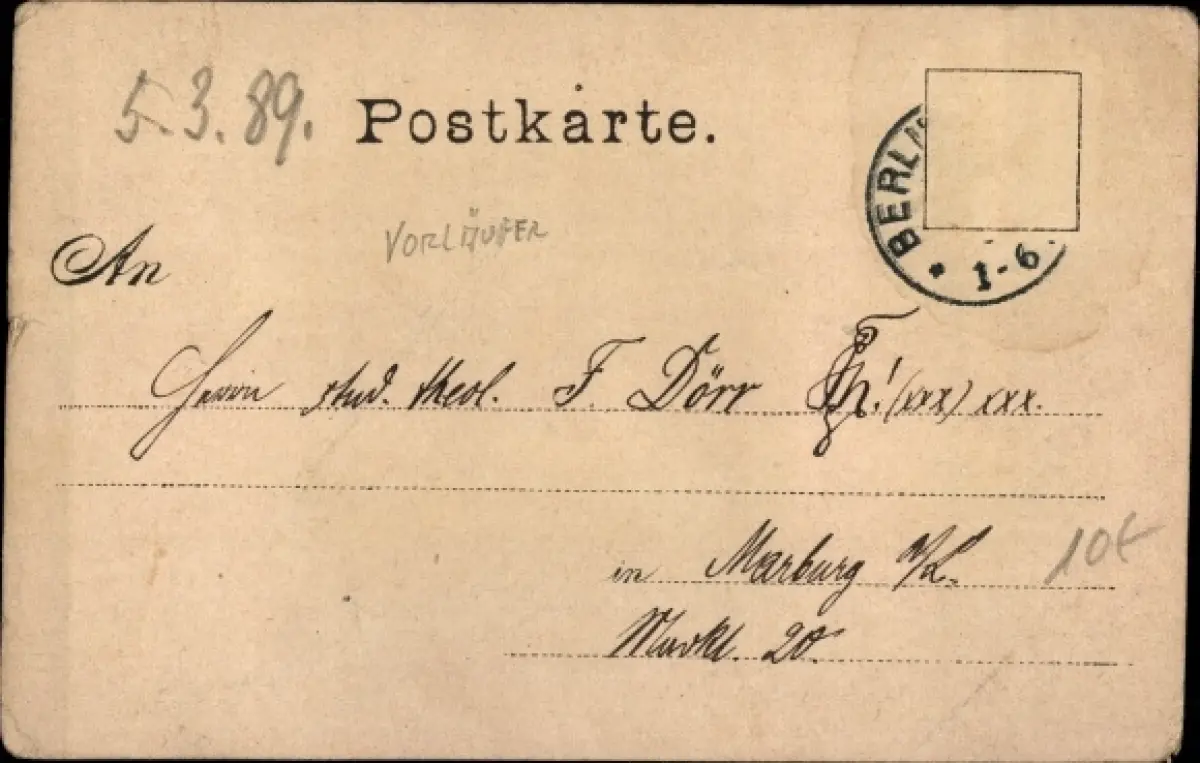 5.3.89.
Postkarte.
BERLIN
* 1-6.
VORLÄUFER
An
Herrn stud. theol. F. Dörr ! (xxx) xxx.
in Marburg a/L.
10€
Markt. 20.